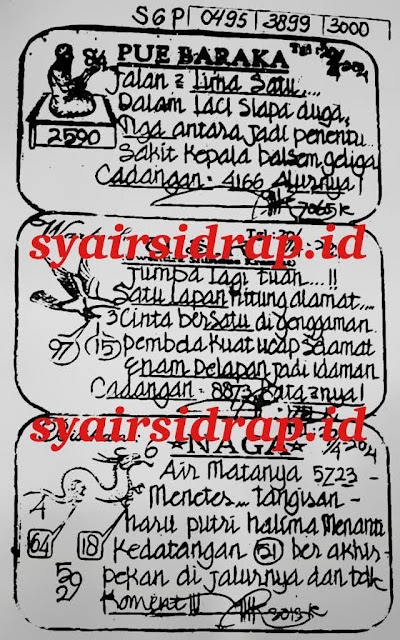 SGP | 0495 | 3899 | 3000
84
PUE BARAKA
Jalan 2 lima Satu....
Dalam laci siapa duga,
2590
Tiga antara jadi penentu..
Sakit kepala balsem geliga
Cadangan: 4166 alurnya!
7065 K
syairsidrap.id
Jumpa lagi tuan...!!
Satu lapan hitung alamat....
3 Cinta bersatu di genggaman
97 15 pembela kuat ucap selamat
Enam Delapan jadi idaman
Cadangan: 8873
syairsidrap.id
6 NAGA
Air Matanya 5723-
Menetes... tangisan-
4 haru putri halima Menanti
64 18 Kedatangan 51 ber akhir-
592 pekan di jalurnya dan tdk
Koment!!!
2013 K